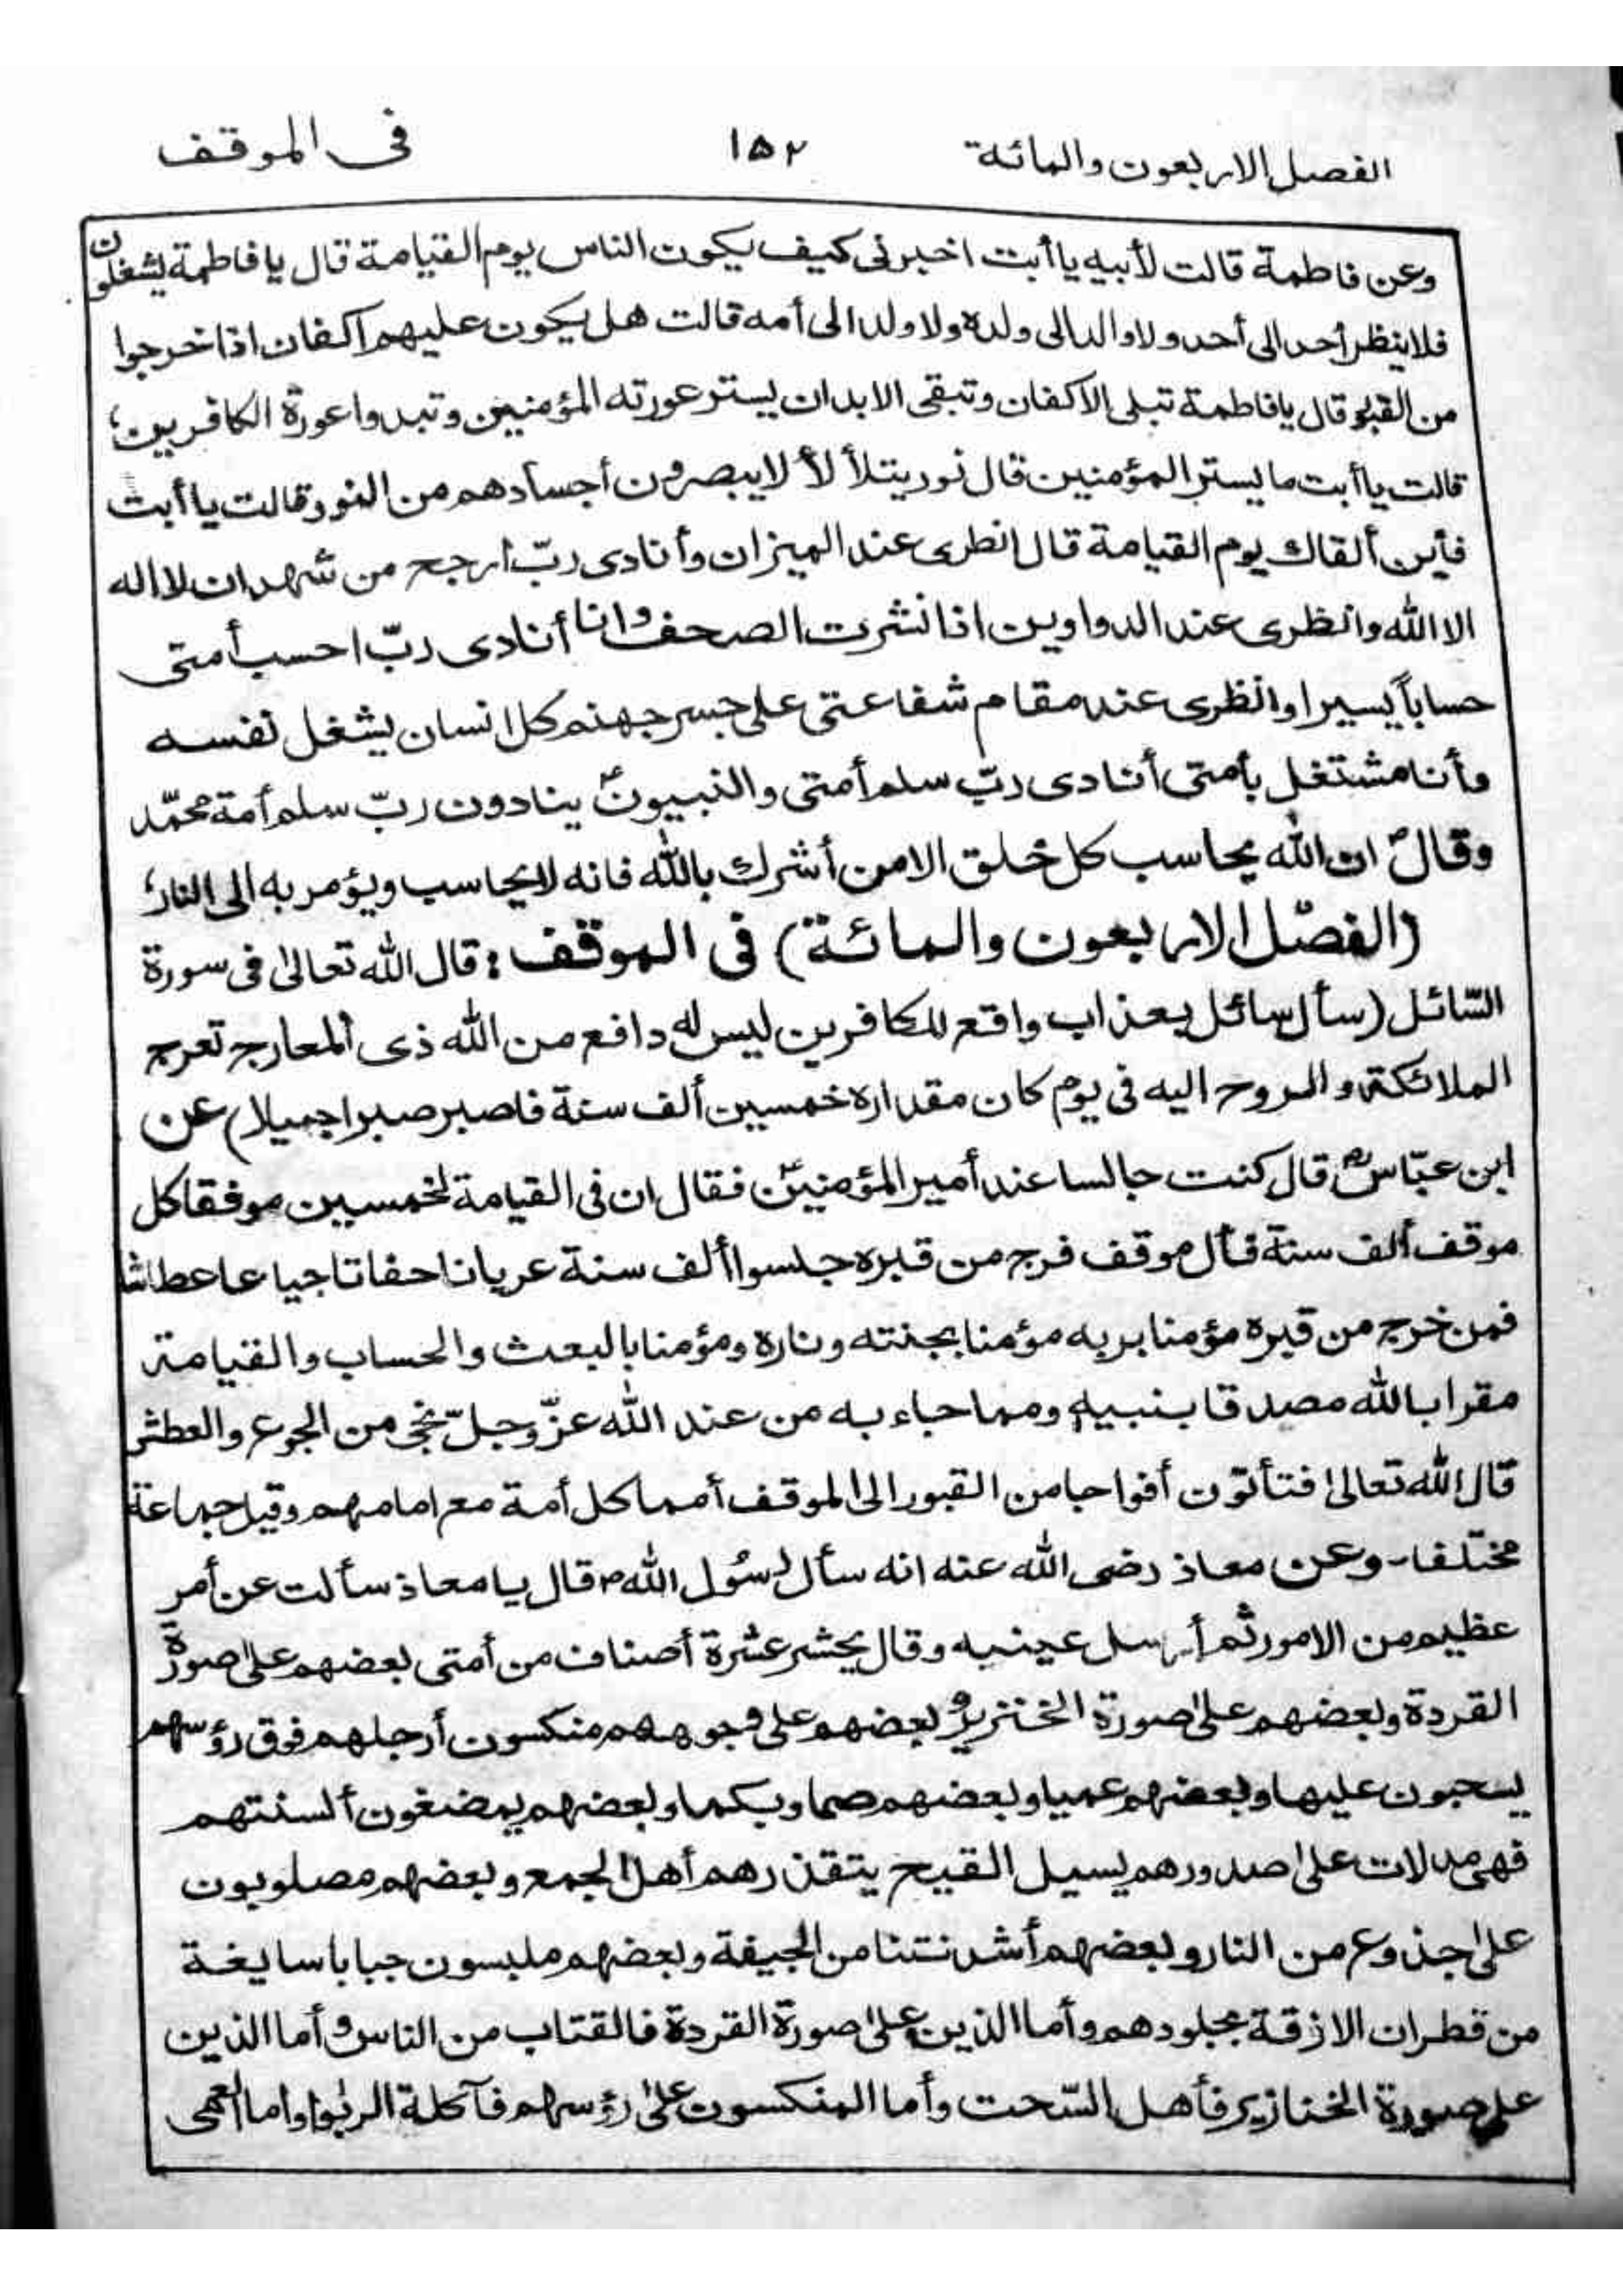 الفصل الاربعون والمائة ١٥٢ فى الموقف
وعن فاطمة قالت لأبيه ياأبت اخبرنى كيف يكون الناس يوم القيامة قال يا فاطمة يشغلون
فلا ينظر أحد الى أحد ولا والد الى ولده ولا ولد الى أمه قالت هل يكون عليهم اكفان اذا خرجوا
من القبور قال يا فاطمة تبلى الاكفان وتبقى الابدان يستر عورته المؤمنين وتبدوا عورة الكافرين؛
قالت ياأبت ما يستر المؤمنين قال نور يتلأ لأ لا يبصرون أجسادهم من النور قالت ياأبت
فأين ألقاك يوم القيامة قال انظرى عند الميزان وأنادى ربّ ارجح من شهد ان لا اله
الا الله وانظرى عند الدواوين اذا نشرت الصحف وانا أنادى ربّ احسب أمتى
حساباً يسيرا وانظرى عند مقام شفاعتى على جسر جهنم كل انسان يشغل نفسه
وأنا مشتغل بأمتى أنادى ربّ سلم أمتى والنبيونؑ ينادون ربّ سلم أمة محمّد
وقالؐ ان الله يحاسب كل خلق الا من أشرك بالله فانه لا يحاسب ويؤمر به الى النار؛
(الفصل الاربعون والمائة) فى الموقف: قال الله تعالىٰ فى سورة
السّائل (سأل سائل بعذاب واقع للكافرين ليس له دافع من الله ذى المعارج تعرج
الملائكة والروح اليه فى يوم كان مقداره خمسين ألف سنة فاصبر صبرا جميلا) عن
ابن عبّاسؓ قال كنت جالسا عند أمير المؤمنينؑ فقال ان فى القيامة لخمسين موفقا كل
موقف ألف سنة فأل موقف فرج من قبره جلسوا ألف سنة عريانا حفاتا جياعا عطاشا
فمن خرج من قبره مؤمنا بربه مؤمنا بجنته وناره ومؤمنا بالبعث والحساب والقيامة
مقرا بالله مصدقا بنبيه ومما جاء به من عند الله عزّ وجلّ نجى من الجوع والعطش
قال الله تعالىٰ فتأتون أفواجا من القبور الى الموقف أمما كل أمة مع امامهم وقيل جماعة
مختلفا۔ وعن معاذ رضى الله عنه انه سأل رسُول اللهؐ قال يا معاذ سألت عن أمر
عظيم من الامور ثم أرسل عينيه وقال يحشر عشرة أصناف من أمتى بعضهم علىٰ صورة
القردة وبعضهم علىٰ صورة الخنزير وبعضهم على وجوههم منكسون أرجلهم فوق رؤسهم
يسحبون عليها وبعضهم عميا وبعضهم صما وبكما وبعضهم يمضغون ألسنتهم
فهى مدلات علىٰ صدورهم يسيل القيح يتقذرهم أهل الجمع وبعضهم مصلوبون
علىٰ جذوع من النار وبعضهم أشد نتنا من الجيفة وبعضهم ملبسون جبابا سايغة
من قطران الازقة بجلودهم وأما الذين علىٰ صورة القردة فالقتاب من الناس وأما الذين
على صورة الخنازير فأهل السّحت وأما المنكسون علىٰ رؤسهم فآكلة الربٰوا واما العمى